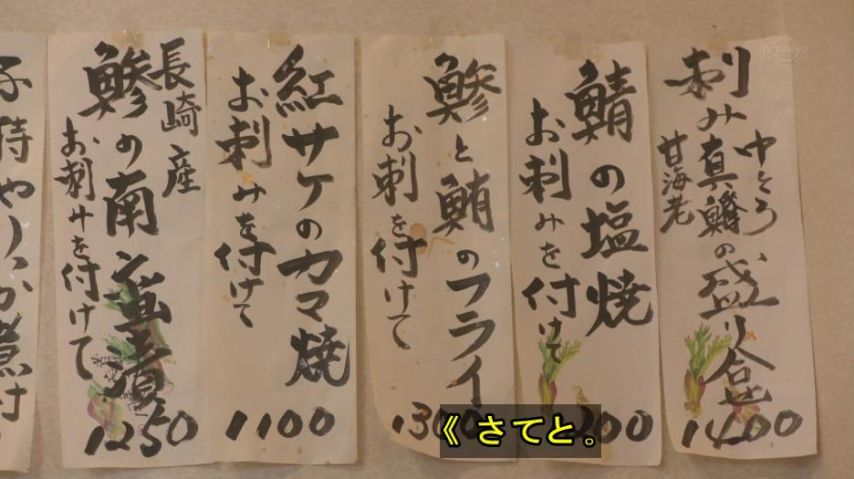 中とろ
刺み真鯵の盛り合せ
甘海老
1400
鯖の塩焼
お刺みを付けて
200
鯵と鮪のフライ
お刺を付けて
1300
紅サケのカマ焼
お刺みを付けて
1100
長崎産
鯵の南蛮漬
お刺みを付けて
1250
子持やりいか煮付
《 さてと。
TV TOKYO